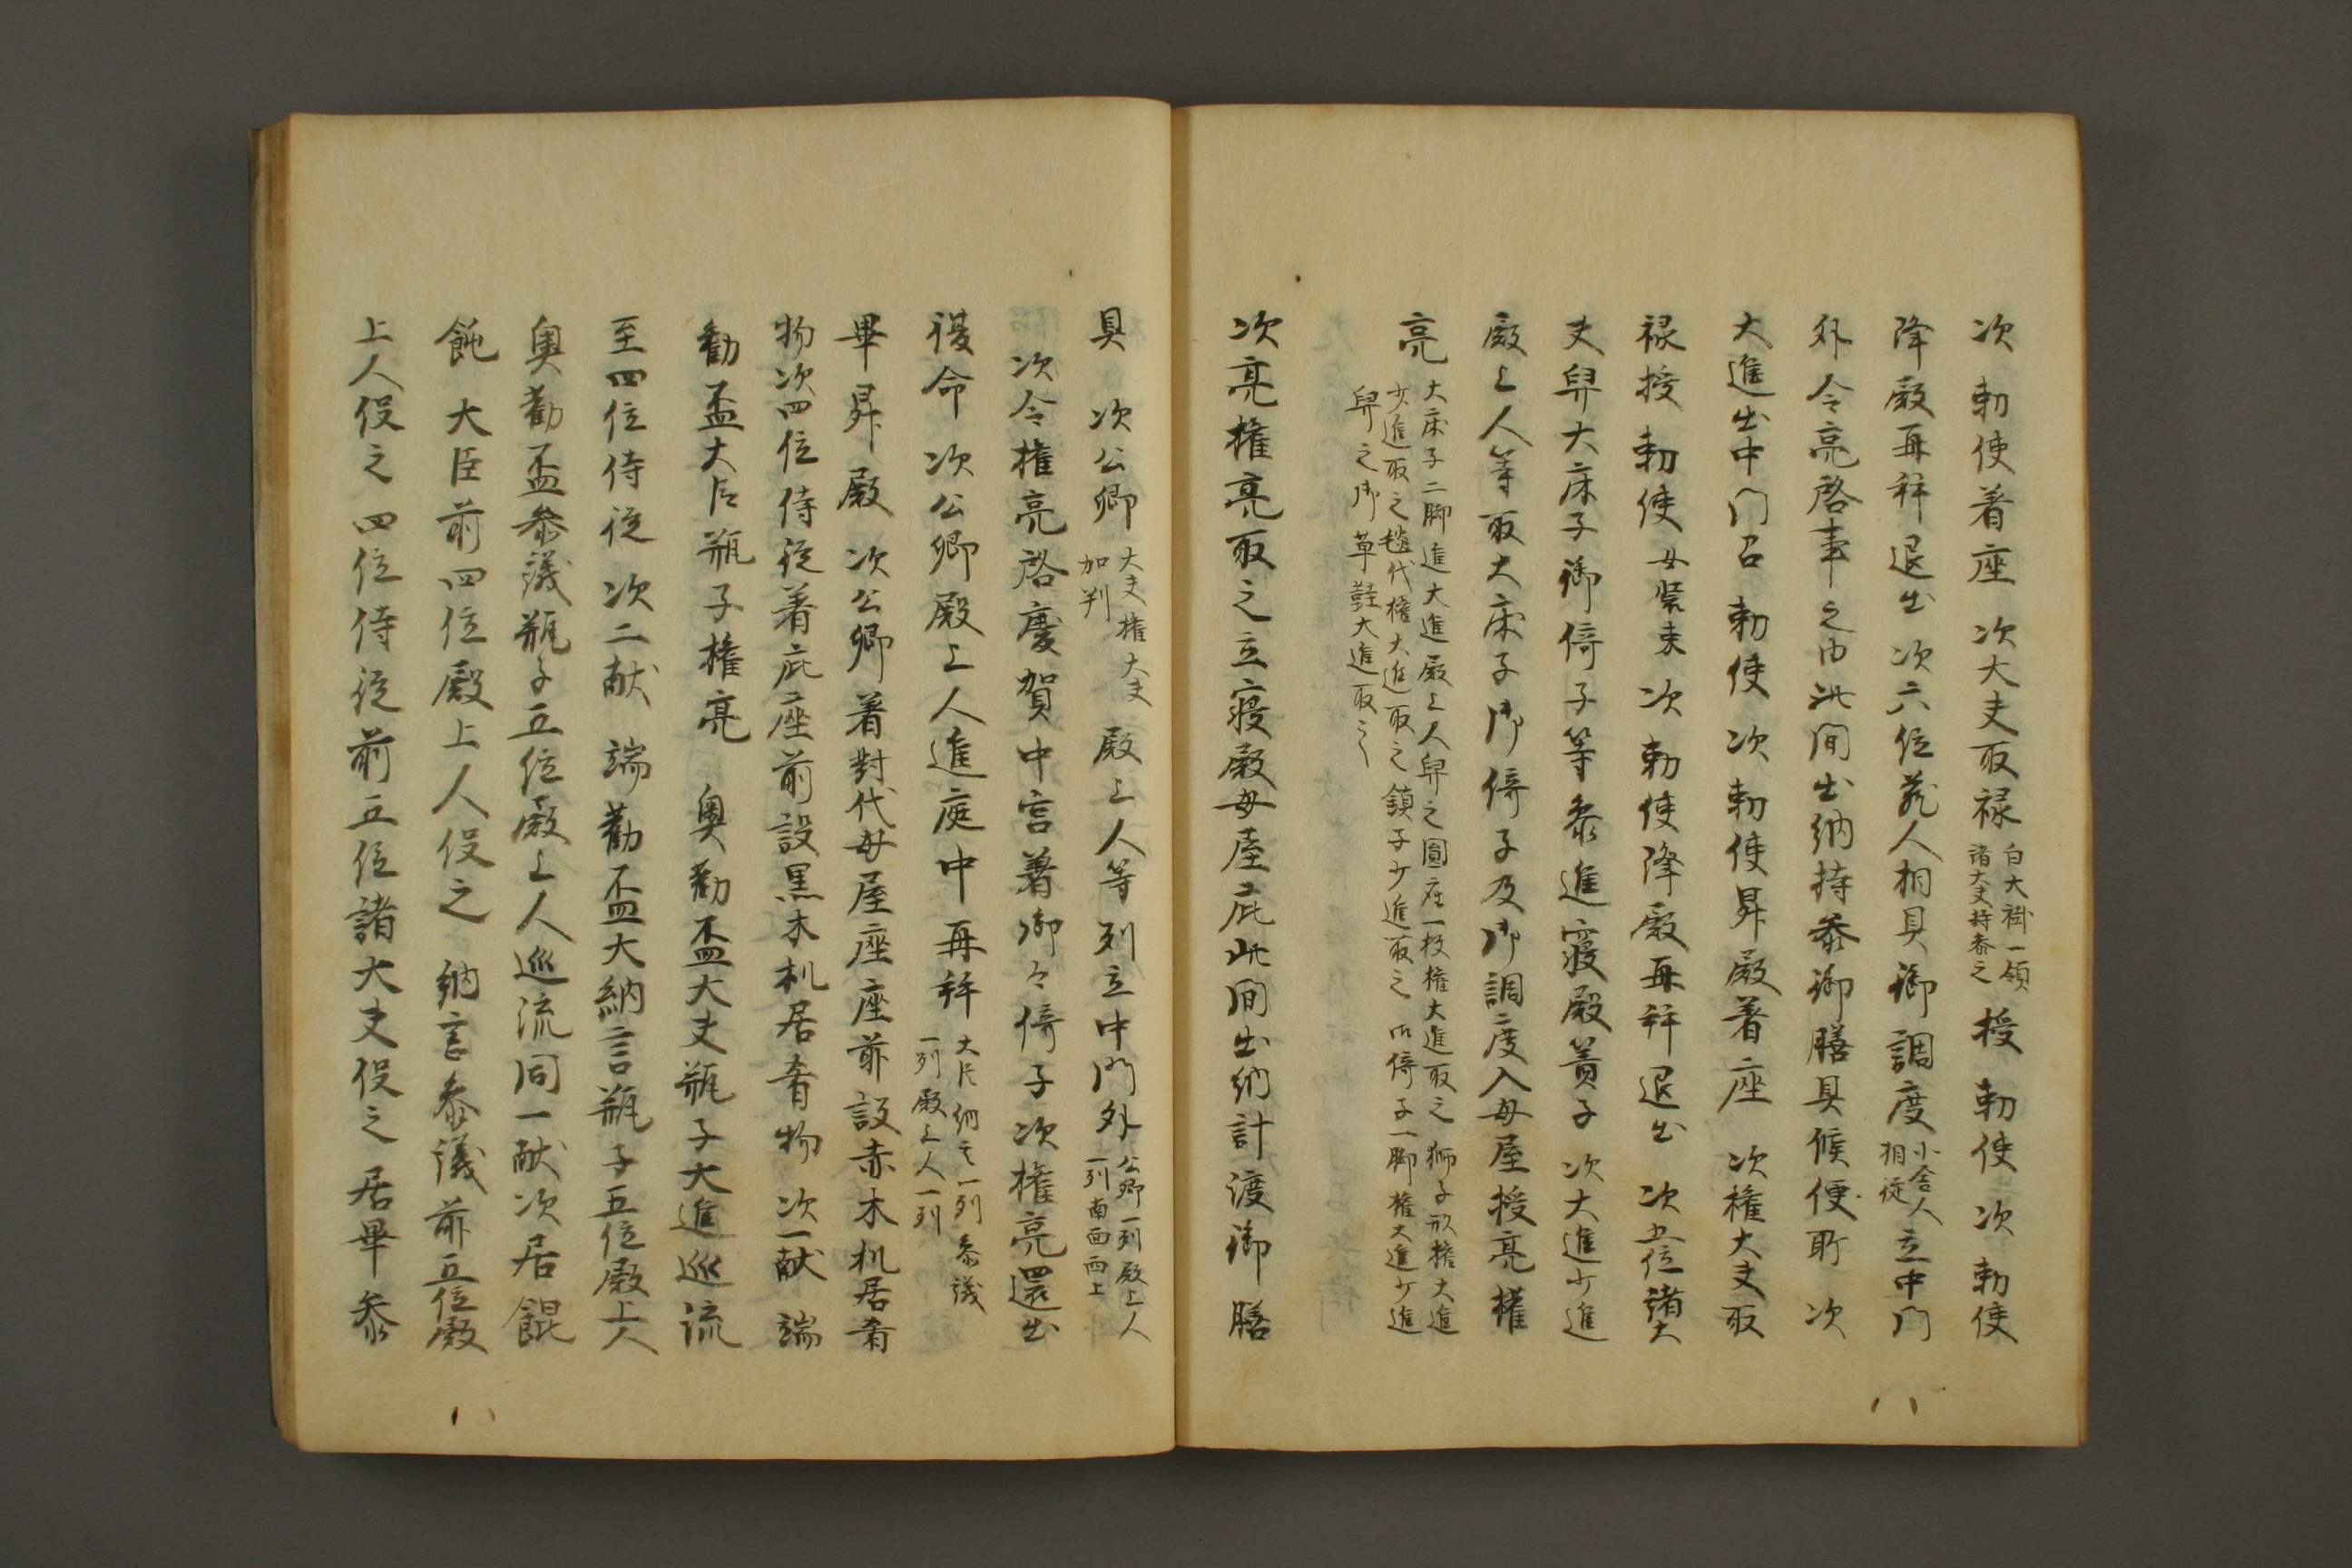 次 勅使着座 次大夫取禄 白大褂一領 諸大夫持参之 授 勅使 次 勅使
降殿再拜退出 次六位蔵人相具御調度 小舎人 相従 立中門
外令亮啓事之由此間出納持参御膳具候便所 次
大進出中門召 勅使 次勅使昇殿着座 次権大夫取
禄授 勅使 女装束 次 勅使降殿再拜退出 次五位諸大
夫舁大床子御倚子等参進寝殿簀子 次大進少進
殿上人等取大床子御倚子及御調度入母屋授亮権
亮 大床子二脚進大進殿上人舁之圓座一枚権大進取之獅子形権大進
少進取之毯代権大進取之鎮子少進取之御倚子一脚権大進少進
舁之御草鞋大進取之
次亮権亮取之立寝殿母屋庇此間出納計渡御膳
具 次公卿 大夫権大夫 加判 殿上人等列立中門外 公卿一列殿上人 一列南面西上
次令権亮啓慶賀中宮着御々倚子次権亮還出
復命 次公卿殿上人進庭中再拜 大臣納言一列参議 一列殿上人一列
畢昇殿 次公卿着對代母屋座座前設赤木机居肴
物次四位侍従着庇座前設黒木机居肴物 次一献 端
勸盃大臣瓶子権亮 奥勸盃大夫瓶子大進巡流
至四位侍従 次二献 端勸盃大納言瓶子五位殿上人
奥勸盃参議瓶子五位殿上人巡流同一献次居餛
飩 大臣前四位殿上人役之 納言参議前五位殿
上人役之四位侍従前五位諸大夫役之居畢参